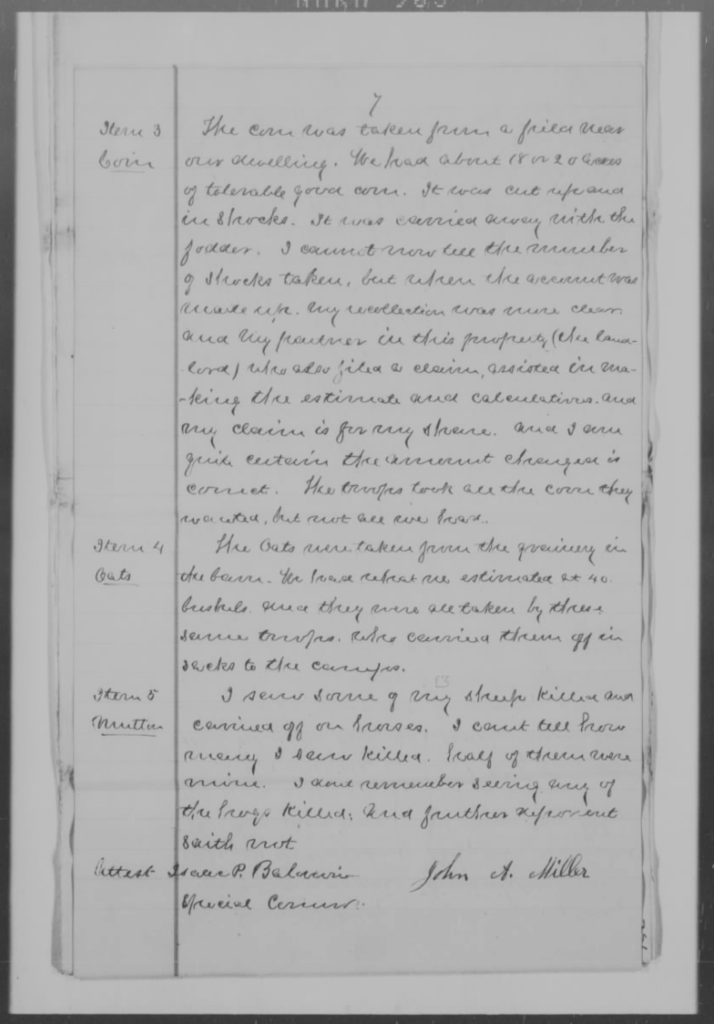 7
Item 3 The corn was taken from a field near
Corn our dwelling. We had about 18 or 20 acres
of tolerable good corn. It was cut up and
in shocks. It was carried away with the
fodder. I cannot now tell the number
of shocks taken, but when the account was
made up. my recollection was more clear
and my partner in this property (the land-
lord) who also filed a claim, assisted in ma-
-king the estimate and calculations. and
my claim is for my share. and I am
quite certain the amount charged is
correct. The troops took all the corn they
wanted, but not all we had.
Item 4 The Oats were taken from the grainery in
Oats the barn. We had what we estimated at 40.
bushels. and they were all taken by these
same troops. who carried them off in
sacks to the camps.
Item 5 I saw some of my sheep killed and
Mutton carried off on horses. I cant tell how
many I saw killed. half of them were
mine. I dont remember seeing any of
the hogs killed; and further deponent
saith not
Attest Isaac P. Baldwin John A. Miller
Special Commr.